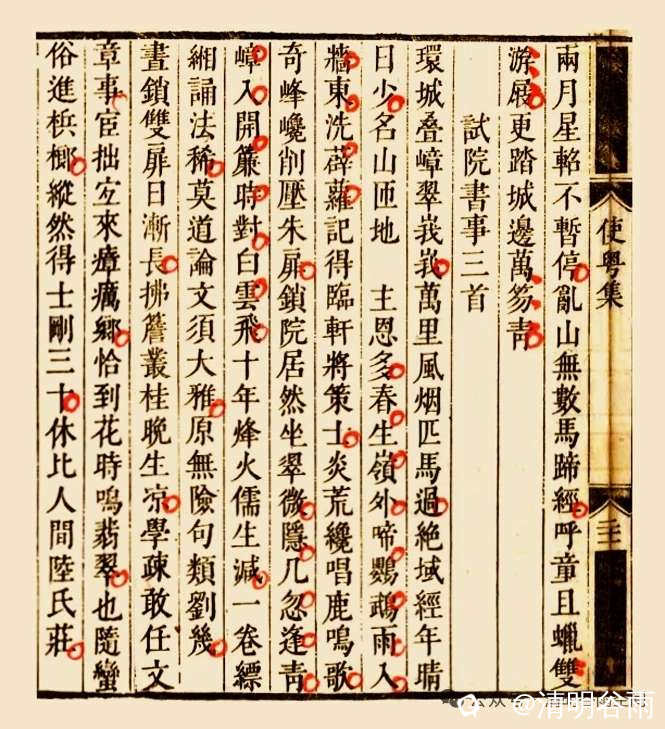 使粵集
兩月星軺不暫停亂山無數馬蹄經呼童且蠟雙
游屐更踏城邊萬笏青
試院書事三首
環城叠嶂翠峩峩萬里風烟匹馬過絕域經年晴
日少名山匝地　主恩多春生嶺外啼鸚鵡雨入
牆東洗薜蘿記得臨軒將策士炎荒纔唱鹿鳴歌
奇峰巉削壓朱扉鎖院居然坐翠微隱几忽逢青
嶂入開簾時對白雲飛十年烽火儒生減一卷縹
緗誦法稀莫道論文須大雅原無險句類劉幾
晝鎖雙扉日漸長拂簷叢桂晚生凉學疎敢任文
章事宦拙宜來瘴癘鄉恰到花時鳴翡翠也隨蠻
俗進梹榔縱然得士剛三十休比人間陸氏莊
@清明谷雨